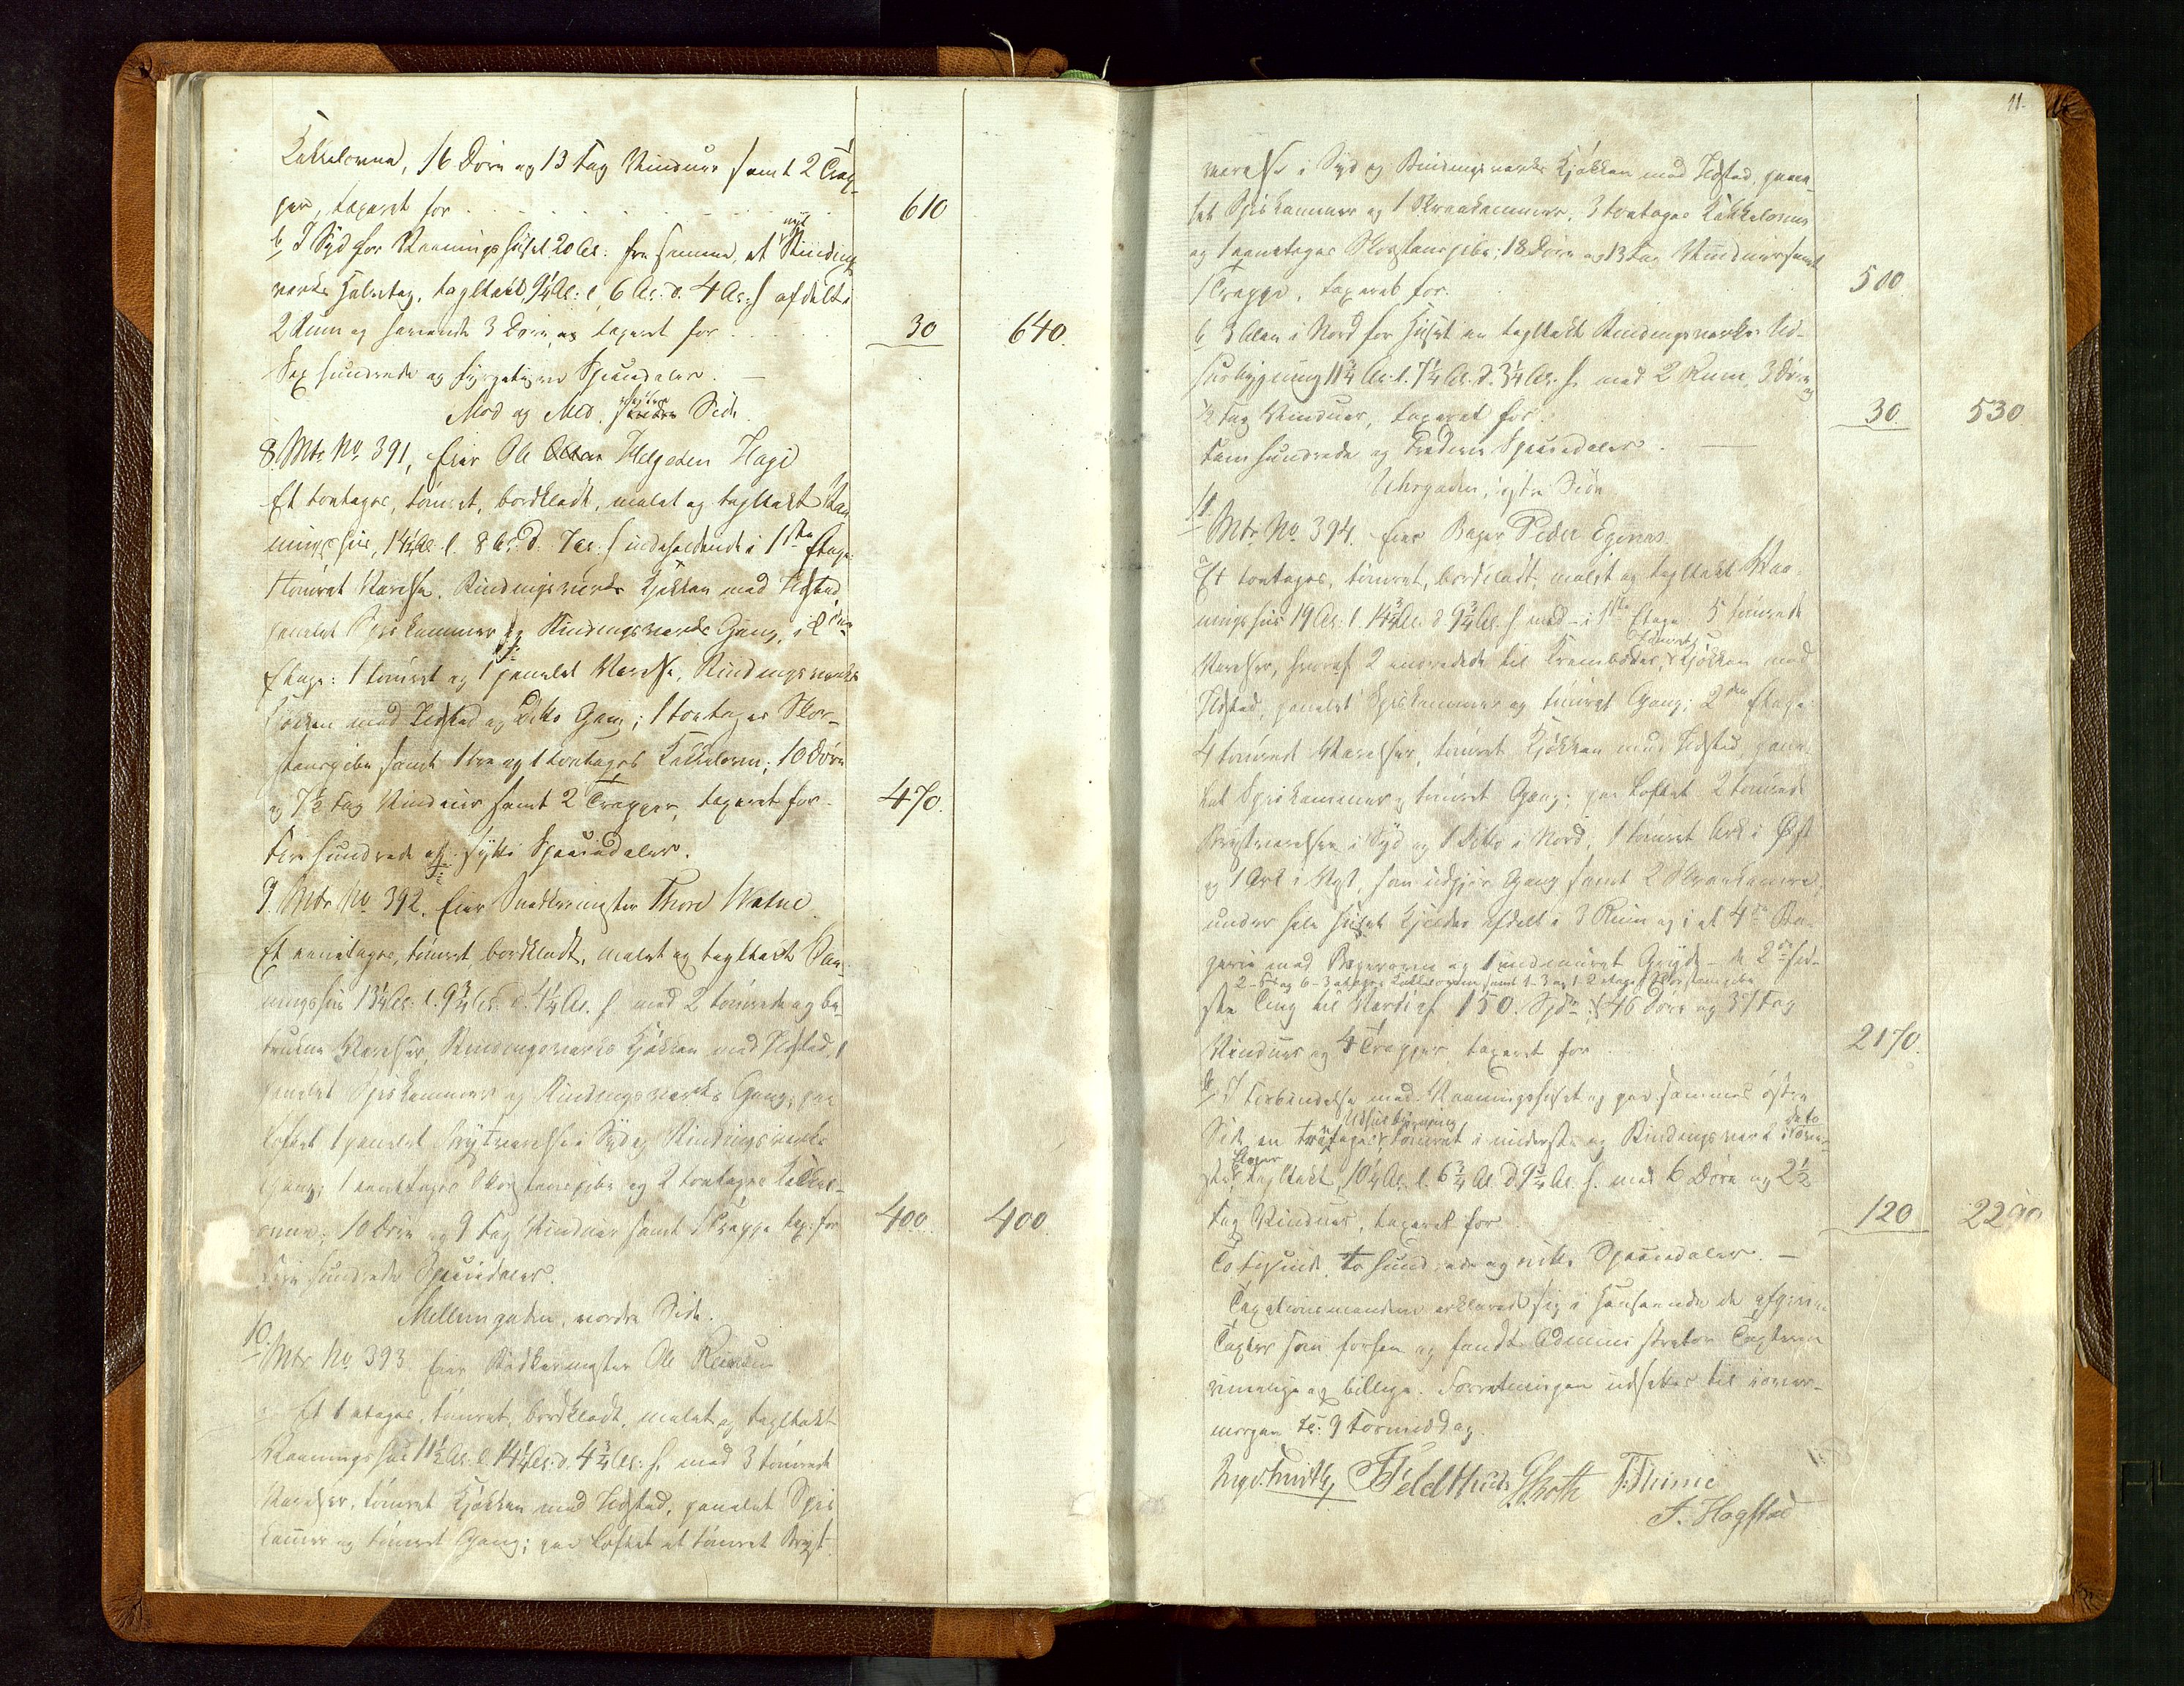 Kakkelovne, 16 Døre og 13 Fag Vinduer samt 2 Trap-
per, taxeret for 610
b, I Syd for Vaaningshuset 20 Al: fra samme, et nyt Bindings
verks Halvtag, tagltakt, 9¼ Al: l 6 Al: d. 4 Al: h afdelt i
2 Rum og havende 3 Døre, og taxeret for 30 640.
Sex hundrede og fyrgetyve Speciedaler. —
Mod og Med. Side
8. Mtr. No. 391, Eier Ole Helgesen Hage
Et toetages, tømret, bordklædt, malet og tagltakt Vaa
ningshus, 14½ Al: l. 8 Al: d. 7 Al: h indeholdende i 1ste Etage
1 tømret Værelse, Bindingsverks Kjøkken med Ildsted
panelet Spiskammer og Bindingsverks Gang, i 2den
Etage: 1 tømret og 1 panelet Værelse, Bindingsverks
Kjøkken med Ildsted og Ditto Gang; 1 toetages Skor-
stenspibe samt 1 tre og 1 toetages Kakkelovn; 10 Døre
og 7½ Fag Vinduer samt 2 Trapper, taxeret for 470.
Fire hundrede og sytti Speciedaler.
9. Mtr. No. 392. Eier Snedkermester Thore Watne.
Et eenetages, tømret, bordklædt, malet og tagltakt Vaa-
ningshus 13¼ Al: l. 9¾ Al: d. 4¼ Al. h med 2 tømrede og be-
trukne Værelser, Bindingsverks Kjøkken med Ildsted, 1
panelet Spiskammer og Bindingsverks Gang; paa
Loftet 1 panelet Brystværelse i Syd og Bindingsverks
Gang; 1 eenetages Skorstenspibe og 2 toetages Kakkel-
ovne; 10 Døre og 9 Fag Vinduer samt 1 Trappe tax. for 400. 400.
Fire hundrede Speciedaler.
Mellemgaden, nordre Side.
10. Mtr. No. 393. Eier Bødkermester Ole
a Et 1 etages, tømret, bordklædt, malet og tagltakt
Vaaningshus 11½ Al: l. 14¼ Al: d. 4¾ Al: h. med 3 tømrede
Værelser, tømret Kjøkken med Ildsted, panelet Spis
kammer og tømret Gang; paa Loftet et tømret Bryst-
11.
værelse i Syd og Bindingsverks Kjøkken med Ildsted, pane-
let Spiskammer og 1 Skraakammer, 3 toetages Kakkelovne
og 1 eenetages Skorstenspibe; 18 Døre og 13 Fag Vinduer samt
1 Trappe, taxeret for 500
b 3 Alen i Nord for Huset en tagltakt Bindingsverks Ud-
husbygning 11¾ Al: l. 7¼ Al. d. 3¼ Al. h. med 2 Rum, 3 Døre og
½ Fag Vinduer, taxeret for 30. 530
Fem hundrede og Tredive Speciedaler. —
østre Side
11. Mtr. No. 394. Eier Bager Peder Egenæs.
a Et toetages, tømret, bordklædt, malet og tagltakt Vaa-
ningshus 19 Al: l. 14¾ Al: d 9¾ Al. h med – i 1ste Etage 5 tømrede
Værelser, hvoraf 2 indredede til Kramboder, tømret Kjøkken med
Ildsted, panelet Spiskammer og tømret Gang; 2den Etage
4 tømrede Værelser, tømret Kjøkken med Ildsted, pane-
let Spiskammer og tømret Gang; paa Loftet 2 tømrede
Brystværelser i Syd og 1 Ditto i Nord, 1 tømret Ark i Øst
og 1 Ark i Vest, som udgjør Gang samt 2 Skraakamre,
under hele Huset Kjælder afdelt i 3 Rum og i et 4de Ba-
geri med Bagerovn og 1 indmuret Gryde – de 2de sid-
ste Ting til Værdi af 150 Spd: 46 Døre og 37 Fag
Vinduer og 4 Trapper taxeret for 2170.
b, I Forbindelse med Vaaningshuset og paa sammes østre
Side en træetages Udhusbygning, tømret i underste og Bindingsverk i dito
ste Etager tagltakt, 10¼ Al. l. 6¾ Al. d 9¾ Al. h. med 6 Døre og 2½
Fag Vinduer, taxeret for 120 2290
To tusinde, to hundrede og nitti Speciedaler. —
Taxationsmændene erklærede sig i Henseende de afgivne
Taxter som forhen og fandt Administrator Taxterne
rimelige og billige. Forretningen udsættes til iover-
morgen Kl: 9 Formiddag.
Feldthuus T. Thime
F. Hogstad